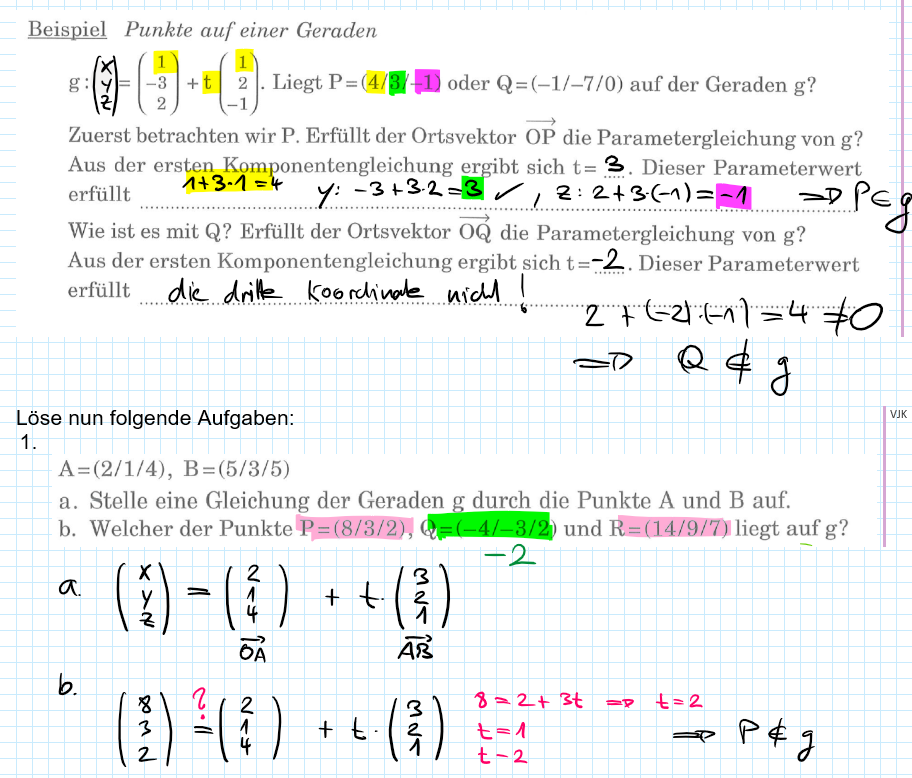 Beispiel Punkte auf einer Geraden
g: (x y z) = (1 -3 2) + t (1 2 -1). Liegt P=(4/3/-1) oder Q=(-1/-7/0) auf der Geraden g?
Zuerst betrachten wir P. Erfüllt der Ortsvektor OP die Parametergleichung von g?
Aus der ersten Komponentengleichung ergibt sich t= 3. Dieser Parameterwert
1+3·1=4
erfüllt y: -3+3·2=3 ✓, z: 2+3·(-1)=-1 ⇒ P∈g
Wie ist es mit Q? Erfüllt der Ortsvektor OQ die Parametergleichung von g?
Aus der ersten Komponentengleichung ergibt sich t=-2. Dieser Parameterwert
erfüllt die dritte Koordinate nicht!
2 + (-2)·(-1) = 4 ≠ 0
⇒ Q ∉ g
Löse nun folgende Aufgaben:
VJK
1.
A=(2/1/4), B=(5/3/5)
a. Stelle eine Gleichung der Geraden g durch die Punkte A und B auf.
b. Welcher der Punkte P=(8/3/2), Q=(-4/-3/2) und R=(14/9/7) liegt auf g?
-2
a. (x y z) = (2 1 4) + t · (3 2 1)
OA AB
b. (8 3 2) ?= (2 1 4) + t · (3 2 1) 8 = 2 + 3t ⇒ t = 2
t = 1 ⇒ P ∉ g
t - 2